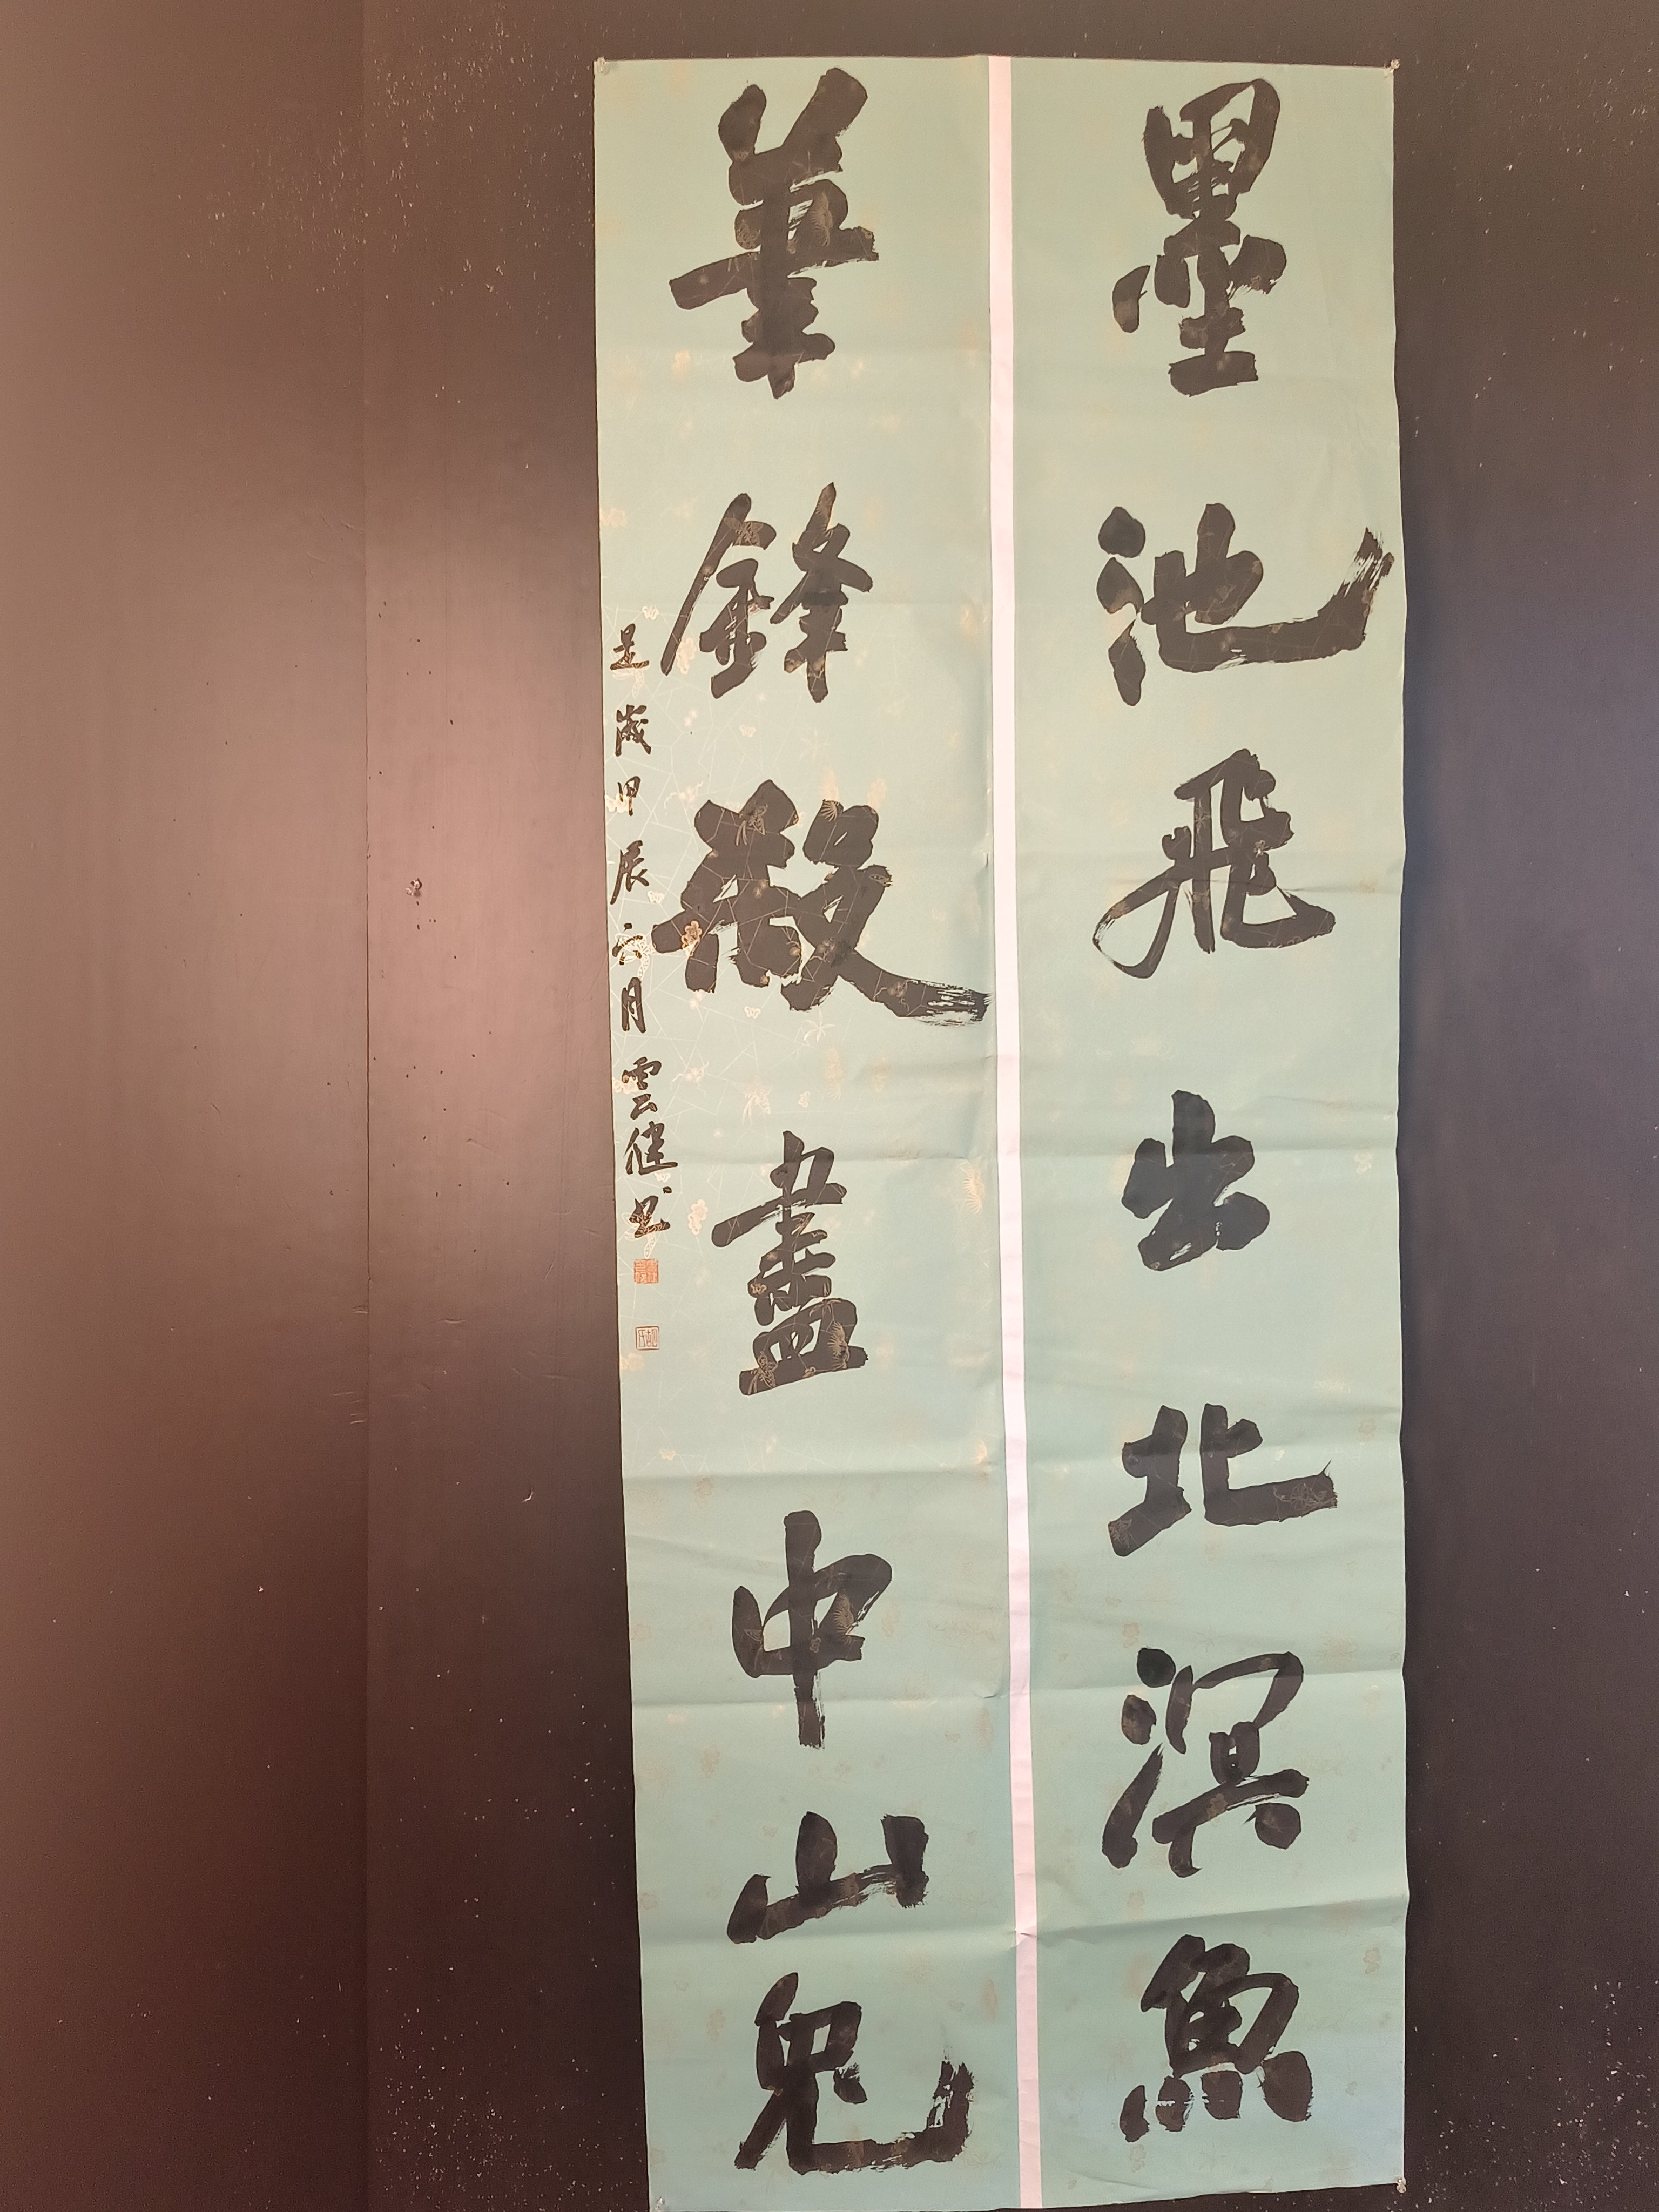 墨池飛出北溟魚
筆鋒殺盡中山兔
是歲甲辰六月雲健书